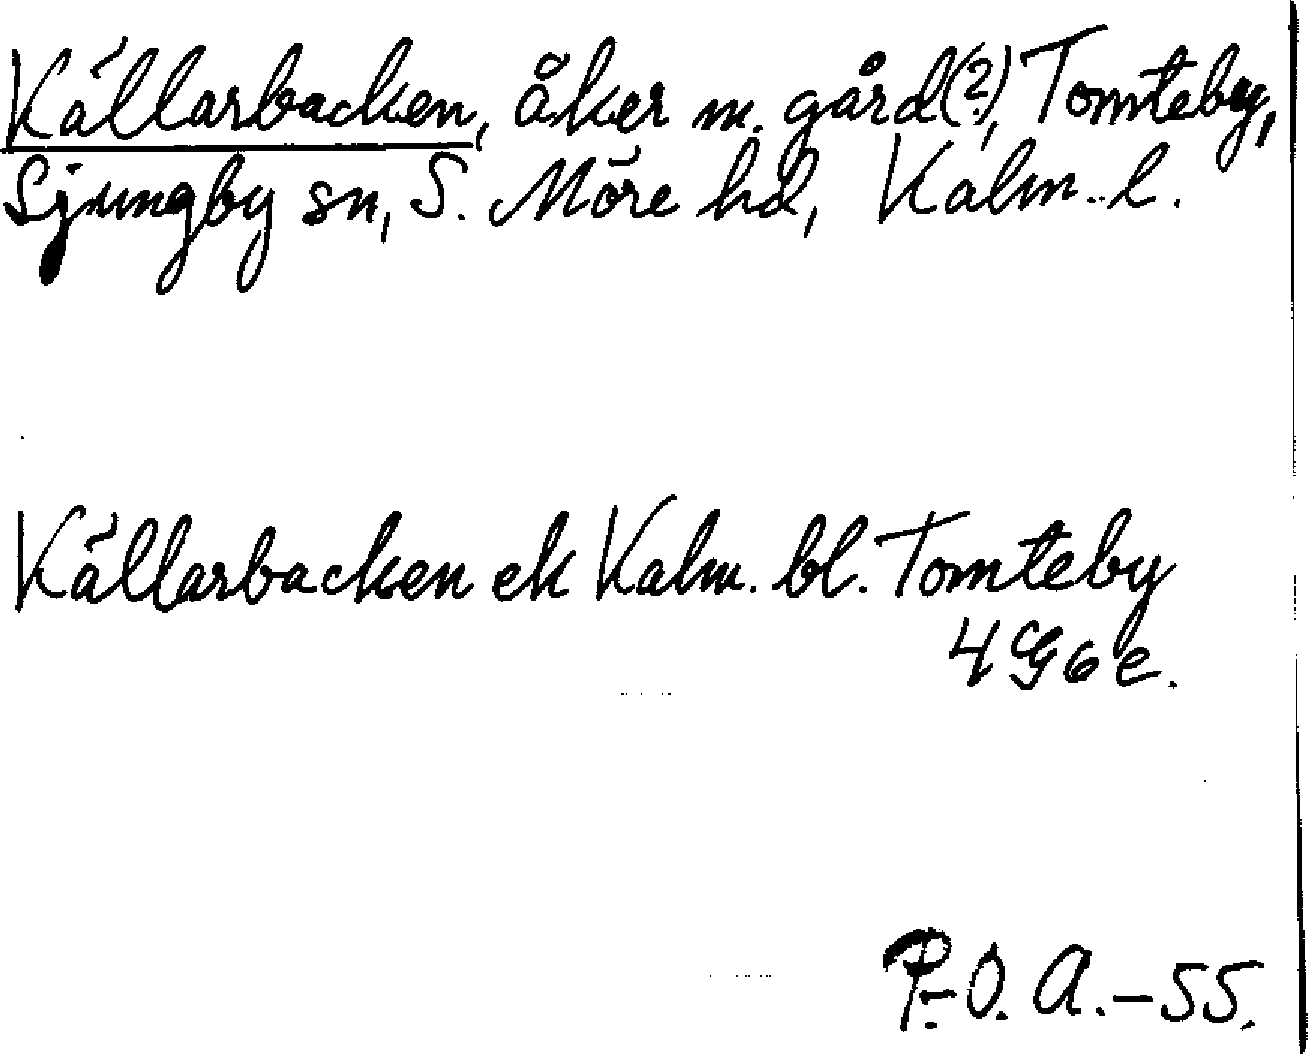 Källarbacken, åker m. gård(?), Tomteby,
Ljungby sn, S. Möre hd, Kalm. l.
Källarbacken ek Kalm. bl. Tomteby
4 G 6 e.
P.-O. A. - 55.